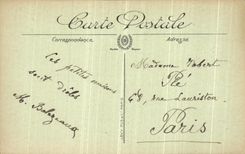 Carte Postale
Correspondance
Adresse
Les petites maisons
sont drôles
Madame Imbert
68, rue Lauriston
Paris